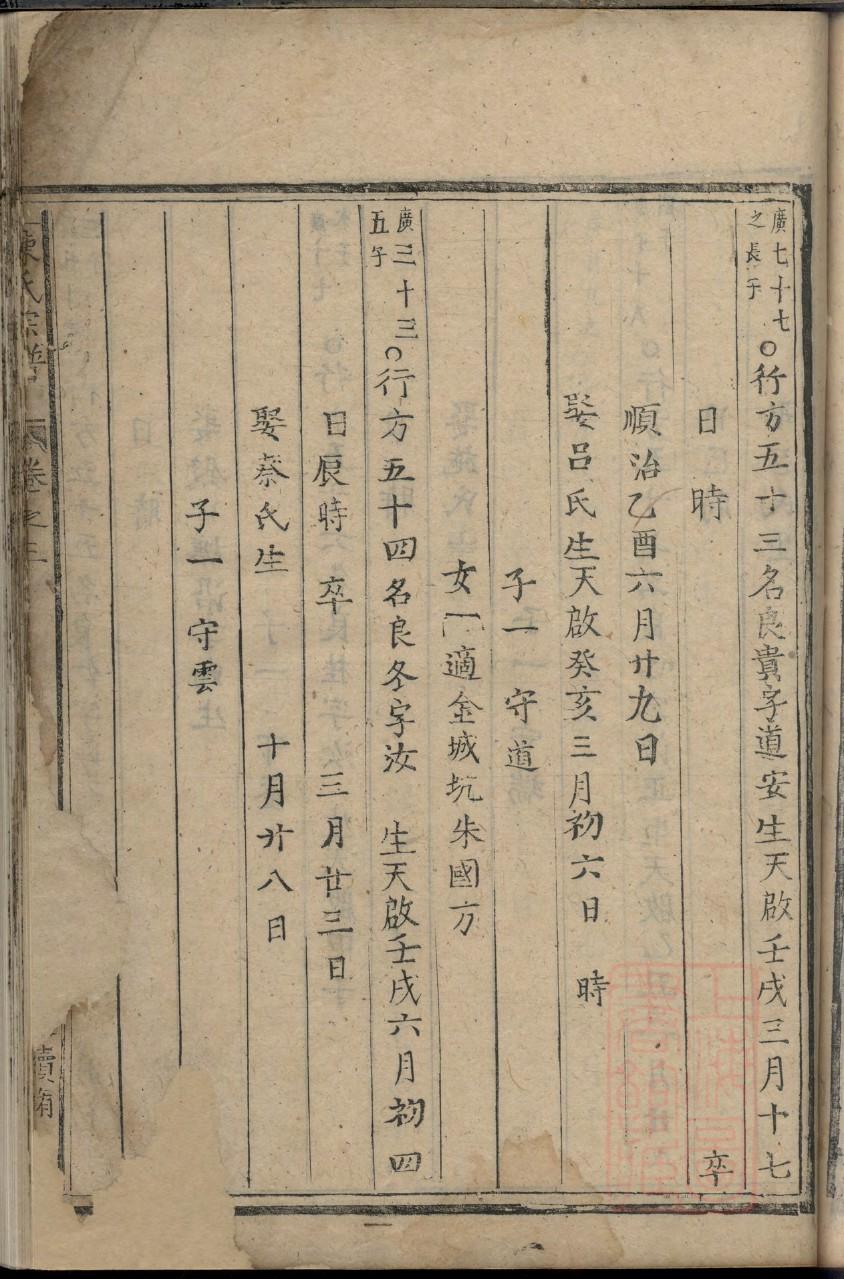 廣七十七
之長子
○行方五十三名良貴字道安生天啟壬戌三月十七
日　時　卒
順治乙酉六月廿九日
娶呂氏生天啟癸亥三月初六日　時
子一　守道
女一適金城坑朱國方
廣三十三
五子
○行方五十四名良冬字汝　生天啟壬戌六月初四
日辰時　卒　三月廿三日
娶蔡氏生　十月廿八日
子一　守雲
陳氏宗譜　卷之三